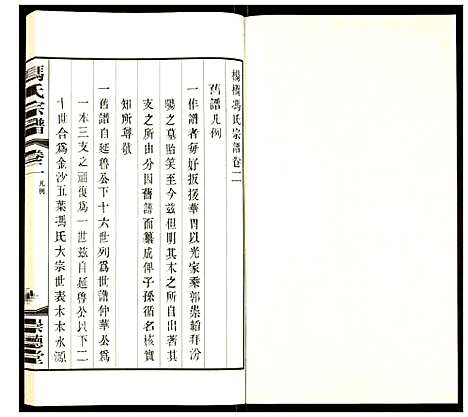 楊橋馮氏宗譜卷二
舊譜凡例
一作譜者每好扳援華胄以光家乘郭崇韜拜汾
陽之墓貽笑至今茲但明其木之所自出者著其
支之所由分因舊譜而纂成俾子孫循名核實
知所尊敬
一舊譜自延魯公下十六世列爲世譜仲華公爲
一本三支之通復爲一世茲自延魯公以下二
十世合爲金沙五葉馮氏大宗世表木本水源
馮氏宗譜
卷二
凡例
崇德堂